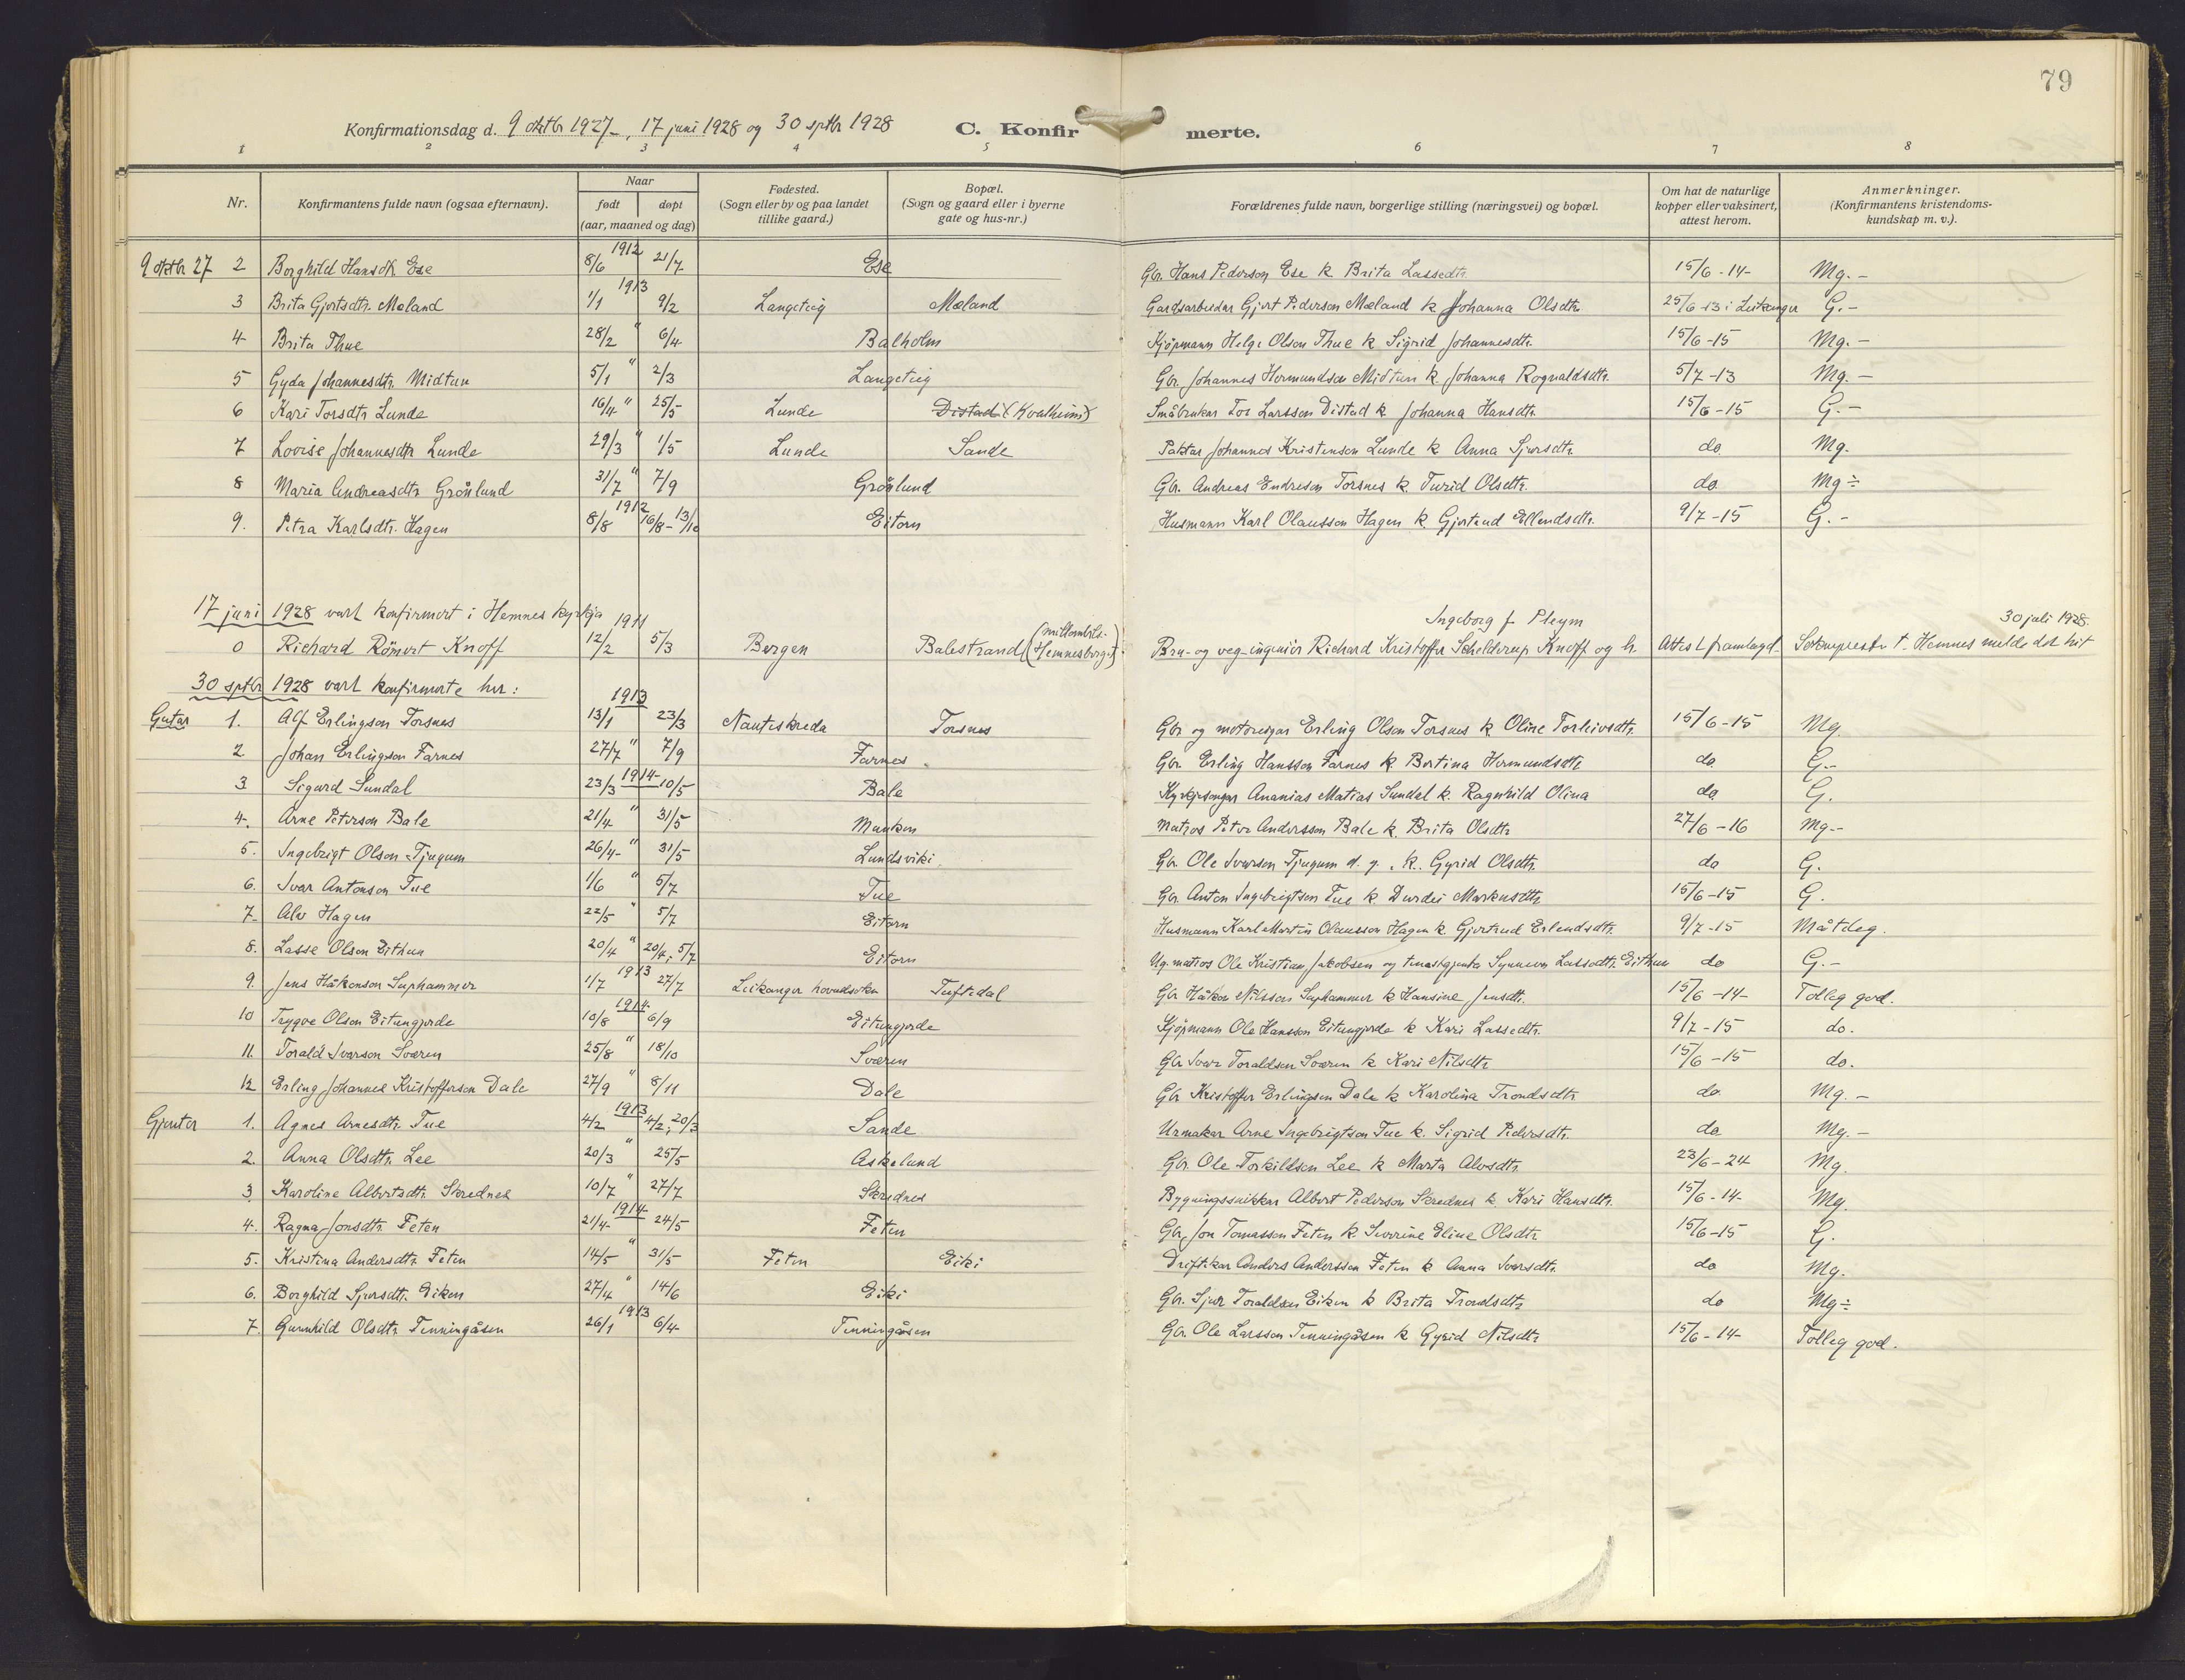 79
Konfirmationsdag d. 9 oktbr 1927-, 17 juni 1928 og 30 sptbr 1928 C. Konfir merte.
1 2 3 4 5 6 7 8
Nr. Konfirmantens fulde navn (ogsaa efternavn). Naar født døpt (aar, maaned og dag) Fødested. (Sogn eller by og paa landet tillike gaard.) Bopæl. (Sogn og gaard eller i byerne gate og hus-nr.) Forældrenes fulde navn, borgerlige stilling (næringsvei) og bopæl. Om hat de naturlige kopper eller vaksinert, attest herom. Anmerkninger. (Konfirmantens kristendoms-kundskap m. v.).
9 oktbr 27 2 Borghild Hansdtr. Ese 8/6 1912 21/7 Ese Gbr. Hans Pederson Ese k Brita Lassedtr. 15/6 - 14- Mg. -
3 Brita Gjertsdtr. Mæland 1/1 1913 9/2 Langeteig Mæland Gardsarbeidar Gjert Pederson Mæland k Johanna Olsdtr. 25/6 -13 i Leikanger G. -
4 Brita Thue 28/2 " 6/4 Balholm Kjöpmann Helge Olson Thue k Sigrid Johannesdtr. 15/6 -15 Mg. -
5 Gyda Johannesdtr. Midtun 5/1 " 2/3 Langeteig Gbr. Johannes Hermundson Midtun k. Johanna Rognaldsdtr. 5/7 -13 Mg. -
6 Kari Torsdtr. Lunde 16/4 " 25/5 Lunde Distad (Kvalheim) Småbrukar Tor Larsson Distad k Johanna Hansdtr. 15/6 -15 G. -
7 Lovise Johannesdtr Lunde 29/3 " 1/5 Lunde Sande Paktar Johannes Kristenson Lunde k Anna Sjursdtr. do Mg.
8 Maria Andreasdtr Grönlund 31/7 " 7/9 Grönlund Gbr. Andreas Endreson Torsnes k. Turid Olsdtr. do Mg ÷
9. Petra Karlsdtr. Hagen 8/8 1912 16/8 - 13/10 Eitorn Husmann Karl Olausson Hagen k. Gjertrud Ellendsdtr. 9/7 -15 G. -
17 juni 1928 vart konfirmert i Hemnes kyrkja
Ingeborg f Pleym 30 juli 1928.
0 Richard Römert Knoff 12/2 1911 5/3 Bergen Balestrand (Hemnesberget) Bru- og veg-ingeniör Richard Kristoffer Schelderup Knoff og h. Attest framlagd Sokneprestn i Hemnes melde det hit
30 sptbr 1928 vart konfirmerte her:
Gutar 1. Alf Erlingson Torsnes 13/1 1913 23/3 Nauteskreda Torsnes Gbr og motoreigar Erling Olson Torsnes k Oline Torleivsdtr. 15/6 -15 Mg.
2 Johan Erlingson Farnes 27/7 " 7/9 Farnes. Gbr. Erling Hansson Farnes k. Bertina Hermundsdtr do G.-
3 Sigurd Sundal 23/3 1914 10/5 Bale Kyrkjesongar Ananias Matias Sundal k. Ragnhild Olina do G.
4. Arne Peterson Bale 21/4 " 31/5 Munken Matros Peter Andersson Bale k. Brita Olsdtr 27/6 -16 Mg.-
5. Ingebrigt Olson Tjugum 26/4- " 31/5 Lundsviki Gbr. Ole Ivarson Tjugum d. y. k. Gyrid Olsdtr. do G.
6. Ivar Antonson Tue 1/6 " 5/7 Tue Gbr. Anton Ingebrigtson Tue k Durdei Markusdtr 15/6 -15 G.
7. Alv Hagen 22/5 " 5/7 Eitorn Husmann Karl Martin Olausson Hagen k. Gjertrud Erlendsdtr. 9/7 -15 Måtdeg.
8. Lasse Olson Eithun 20/4 " 20/4, 5/7 Eitorn Ug. matros Ole Kristian Jakobsen og tenestgjenta Synneva Lassedtr. Eithun do G. -
9. Jens Håkonson Suphammer 1/7 1913 27/7 Leikanger hovudsokn Tuftedal Gbr Håkon Nilsson Suphammer k Hansine Jensdtr. 15/6 -14- Tolleg god.
10 Trygve Olson Eitungjerde 10/8 1914 6/9 Eitungjerde Kjöpmann Ole Hansson Eitungjerde k Kari Lassedtr. 9/7 -15 do.
11. Torald Ivarson Sværen 25/8 " 18/10 Sværen Gbr Ivar Toraldsen Sværen k Kari Nilsdtr 15/6 -15 do.
12 Erling Johannes Kristofferson Dale 27/9 " 8/11 Dale Gbr Kristoffer Erlingsen Dale k Karolina Trondsdtr do Mg. -
Gjentor 1. Agnes Arnesdtr. Tue 4/2 1913 4/2; 20/3 Sande Urmakar Arne Ingebrigtson Tue k. Sigrid Pedersdtr. do Mg. -
2. Anna Olsdtr. Lee 20/3 " 25/5 Askelund Gbr. Ole Torkildsen Lee k Marta Alvsdtr 23/6 - 24 Mg.
3. Karoline Albertsdtr. Skrednes 10/7 " 27/7 Skrednes Bygningssnikkar Albert Pederson Skrednes k Kari Hansdtr. 15/6 -14- Mg.
4. Ragna Jonsdtr. Feten 21/4- 1914 24/5 Feten Gbr, Jon Tomassen Feten k. Severine Eline Olsdtr 15/6 -15 G.
5. Kristina Andersdtr. Feten 14/5 " 31/5 Feten Eiki Driftekar Anders Andersson Feten k Anna Ivarsdtr. do Mg.
6. Borghild Sjursdtr. Eiken 27/4 " 14/6 Eiki Gbr. Sjur Toraldsen Eiken k Brita Trondsdtr do Mg ÷
7. Gunnhild Olsdtr Tenningåsen 26/1 1913 6/4- Tenningåsen Gbr. Ole Larsson Tenningåsen k Gyrid Nilsdtr 15/6 -14- Tolleg god.